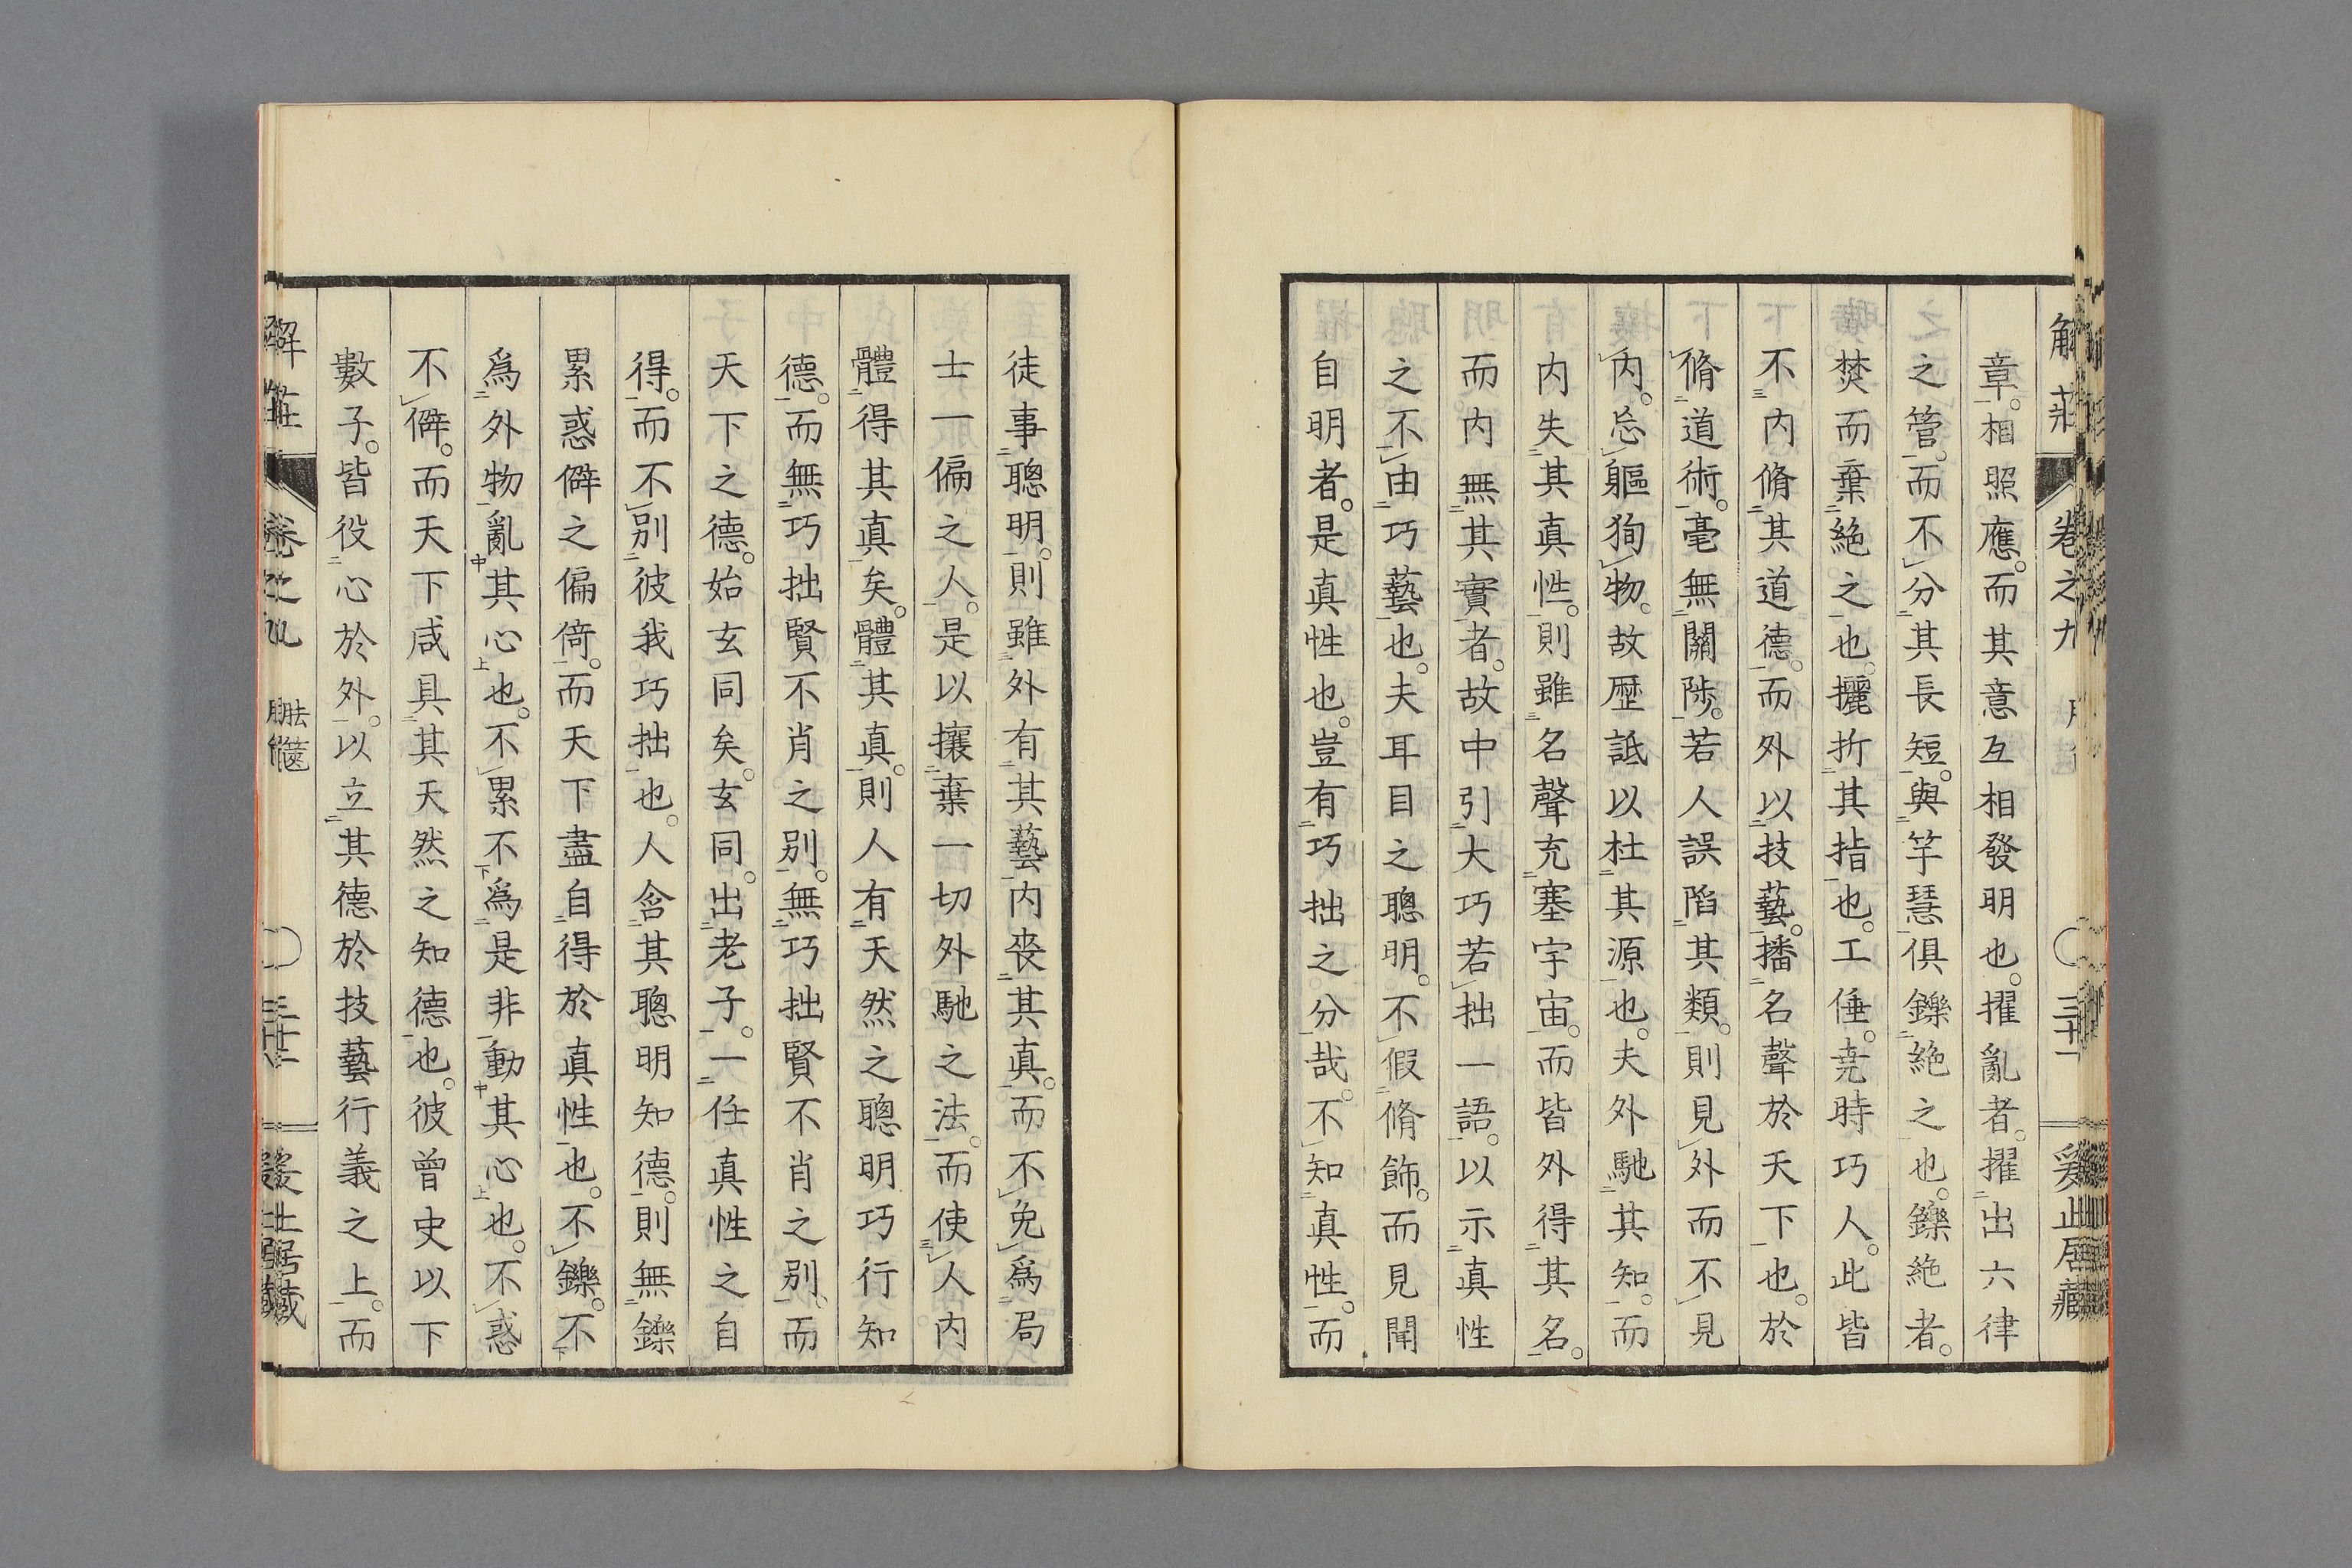 章。相照應。而其意互相發明也。擢亂者。擢出六律
之管。而不分其長短。與竽慧俱鑠絶之也。鑠絶者。
焚而棄絶之也。攦折其指也。工倕。堯時巧人。此皆
不内脩其道德。而外以技藝。播名聲於天下也。於
脩道術。毫無關陟。若人誤陷其類。則見外而不見
内。忘軀狥物。故歴詆以杜其源也。夫外馳其知。而
内失其真性。則雖名聲充塞宇宙。而皆外得其名。
而内無其實者。故中引大巧若拙一語。以示真性
之不由巧藝也。夫耳目之聰明。不假脩飾。而見聞
自明者。是真性也。豈有巧拙之分哉。不知真性。而
徒事聰明。則雖外有其藝。内喪其真。而不免爲局
士一偏之人。是以攘棄一切外馳之法。而使人内
體得其真矣。體其真。則人有天然之聰明巧行知
德。而無巧拙賢不肖之別。無巧拙賢不肖之別。而
天下之德。始玄同矣。玄同。出老子。一任真性之自
得。而不別彼我巧拙也。人含其聰明知德。則無鑠
累惑僻之偏倚。而天下盡自得於真性也。不鑠。不
爲外物亂其心也。不累不爲是非動其心也。不惑
不僻。而天下咸具其天然之知德也。彼曾史以下
數子。皆役心於外。以立其德於技藝行義之上。而
解莊 卷之九 胠篋 三十一